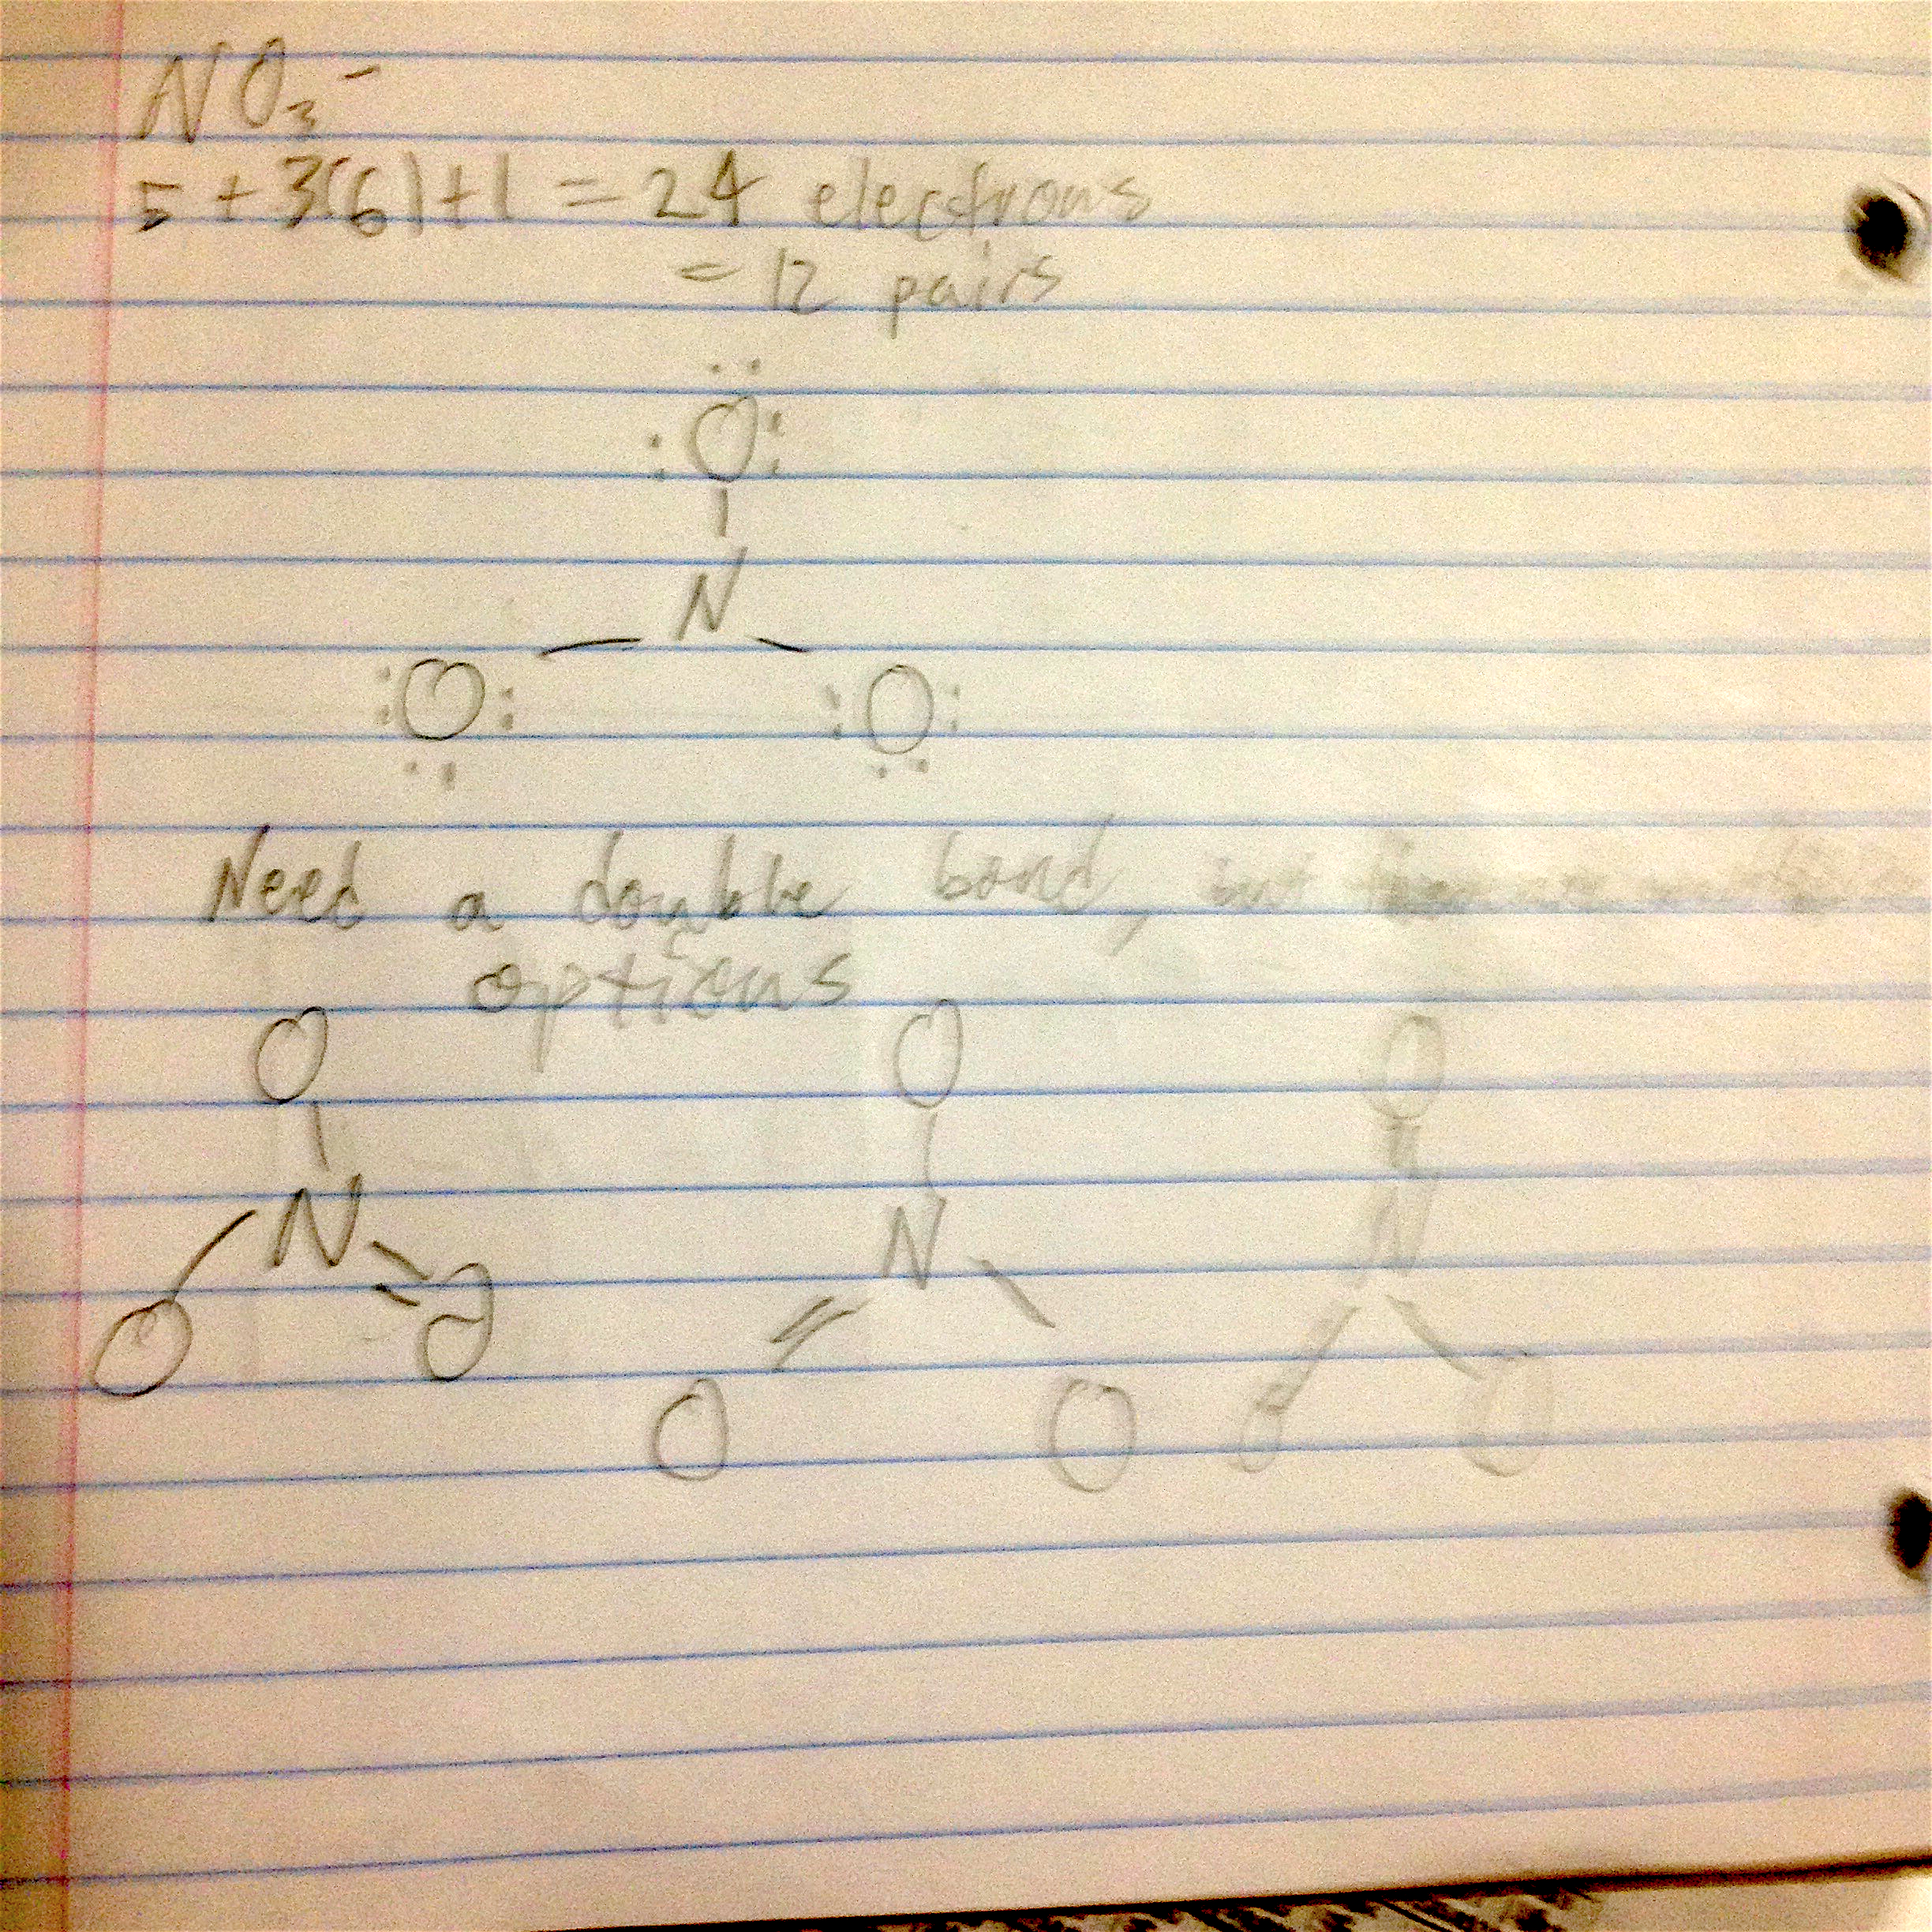 NO₃⁻
5 + 3(6) + 1 = 24 electrons
= 12 pairs
O
N
O O
Need a double bond, but
options
O O O
N N N
O O O O O O